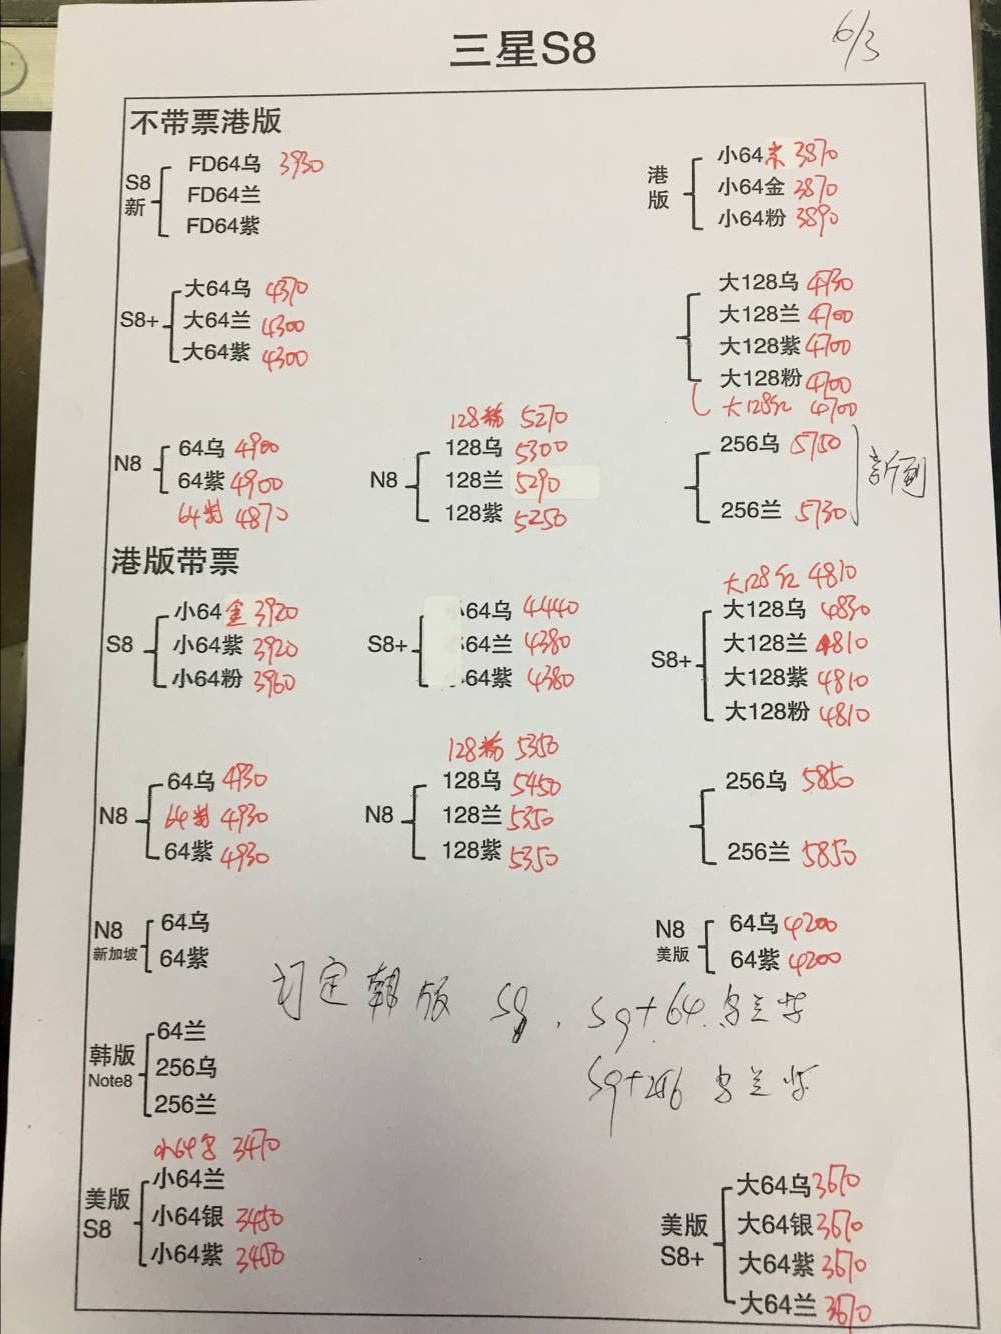 三星S8
6/3
不带票港版
S8
新
FD64乌 3930
FD64兰
FD64紫
港
版
小64 3870
小64金 3870
小64粉 3890
S8+
大64乌 4370
大64兰 4300
大64紫 4300
大128乌 4730
大128兰 4700
大128紫 4700
大128粉 4700
大128红 4700
N8
64乌 4900
64紫 4900
64 4870
N8
128粉 5270
128乌 5300
128兰 5290
128紫 5250
256乌 5750
256兰 5730
新到
港版带票
S8
小64金 3920
小64紫 3920
小64粉 3960
S8+
64乌 4440
64兰 4380
64紫 4380
S8+
大128红 4810
大128乌 4830
大128兰 4810
大128紫 4810
大128粉 4810
N8
64乌 4930
64 4930
64紫 4930
N8
128粉 5350
128乌 5450
128兰 5350
128紫 5350
256乌 5850
256兰 5850
N8
新加坡
64乌
64紫
N8
美版
64乌 4200
64紫 4200
订定韩版 S9、S9+64.乌兰紫
S9+256 乌兰紫
韩版
Note8
64兰
256乌
256兰
美版
S8
小64乌 3470
小64兰
小64银 3450
小64紫 3450
美版
S8+
大64乌 3670
大64银 3670
大64紫 3670
大64兰 3670